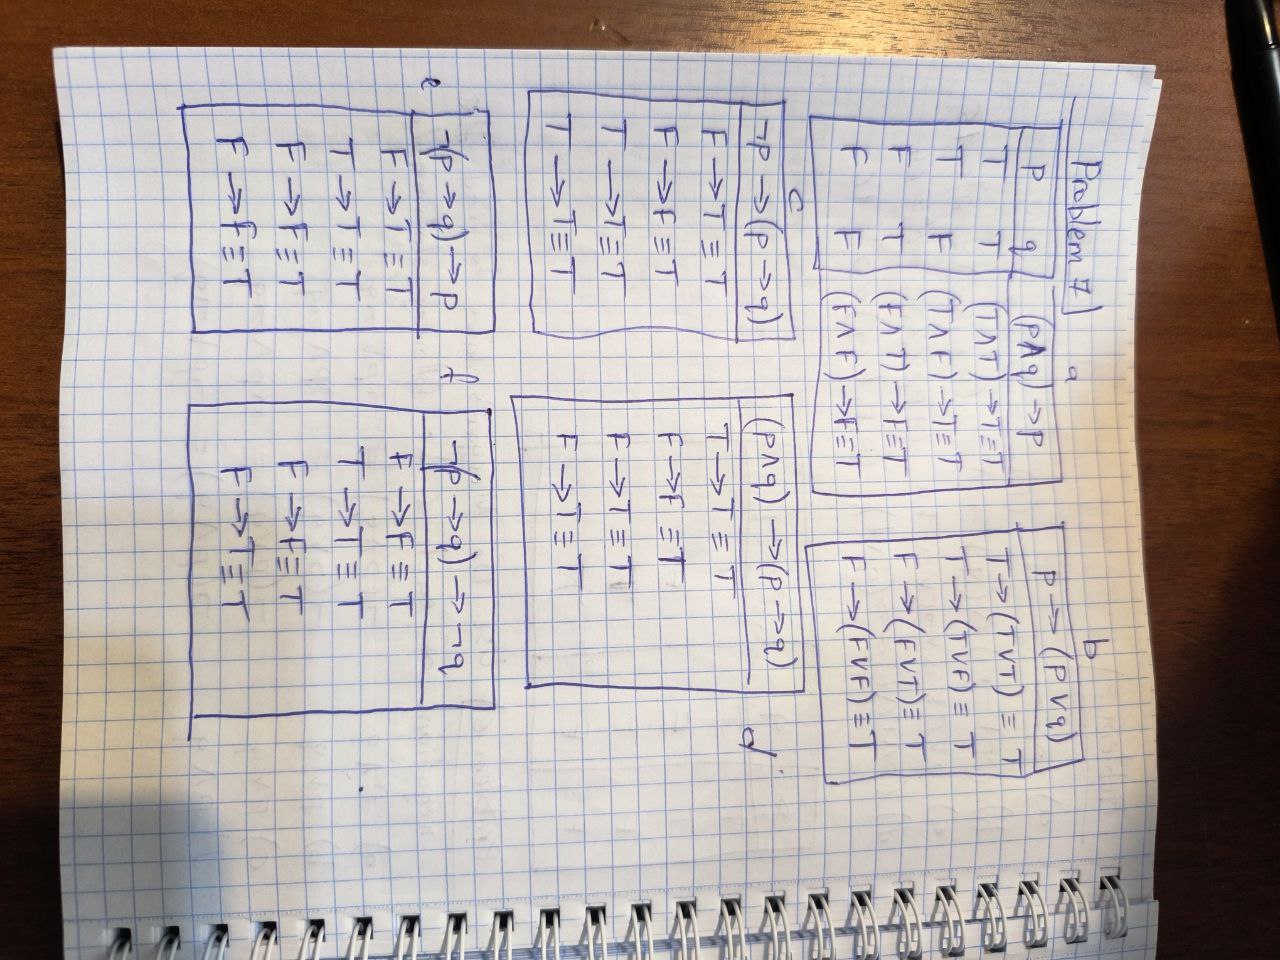 Problem 7)
a
b
p q (p∧q)→p
T T (T∧T)→T≡T
T F (T∧F)→T≡T
F T (F∧T)→F≡T
F F (F∧F)→F≡T
p→(p∨q)
T→(T∨T)≡T
T→(T∨F)≡T
F→(F∨T)≡T
F→(F∨F)≡T
c
¬p→(p→q)
F→T≡T
F→F≡T
T→T≡T
T→T≡T
d
(p∧q)→(p→q)
T→T≡T
F→F≡T
F→T≡T
F→T≡T
e
¬(p→q)→p
F→T≡T
T→T≡T
F→F≡T
F→F≡T
f
¬(p→q)→¬q
F→F≡T
T→T≡T
F→F≡T
F→T≡T